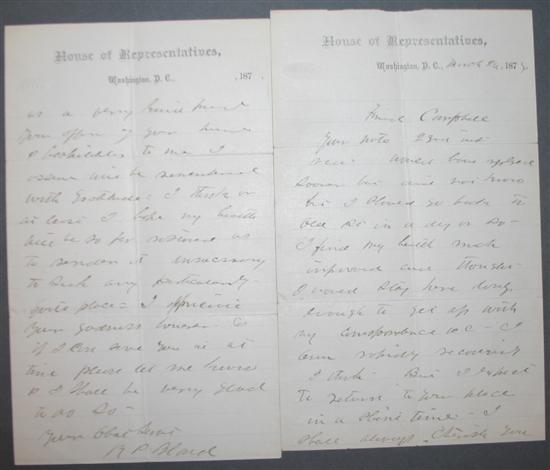 House of Representatives,
Washington, D. C., March 26, 187
Friend Campbell
Your note 23rd inst
recd. would have replied
sooner but did not know
but I should go back to
Old Pt in a day or so -
I find my health much
improved and thought
I would stay here long
enough to get up with
my correspondence &c - I
am rapidly recovering
I think. But I expect
to return to your place
in a short time - I
shall always cherish you
House of Representatives,
Washington, D. C., , 187 .
as a very kind friend
Your offer of your house
& hospitalities to me I
assure will be remembered
with gratitude - I think or
at least I hope my health
will be so far restored as
to render it unnecessary
to seek any particularly
place - I appreciate
your goodness however &
if I can serve you at at
time please let me know
& I shall be very glad
to do so -
Your Obdt Servt
R P Bland